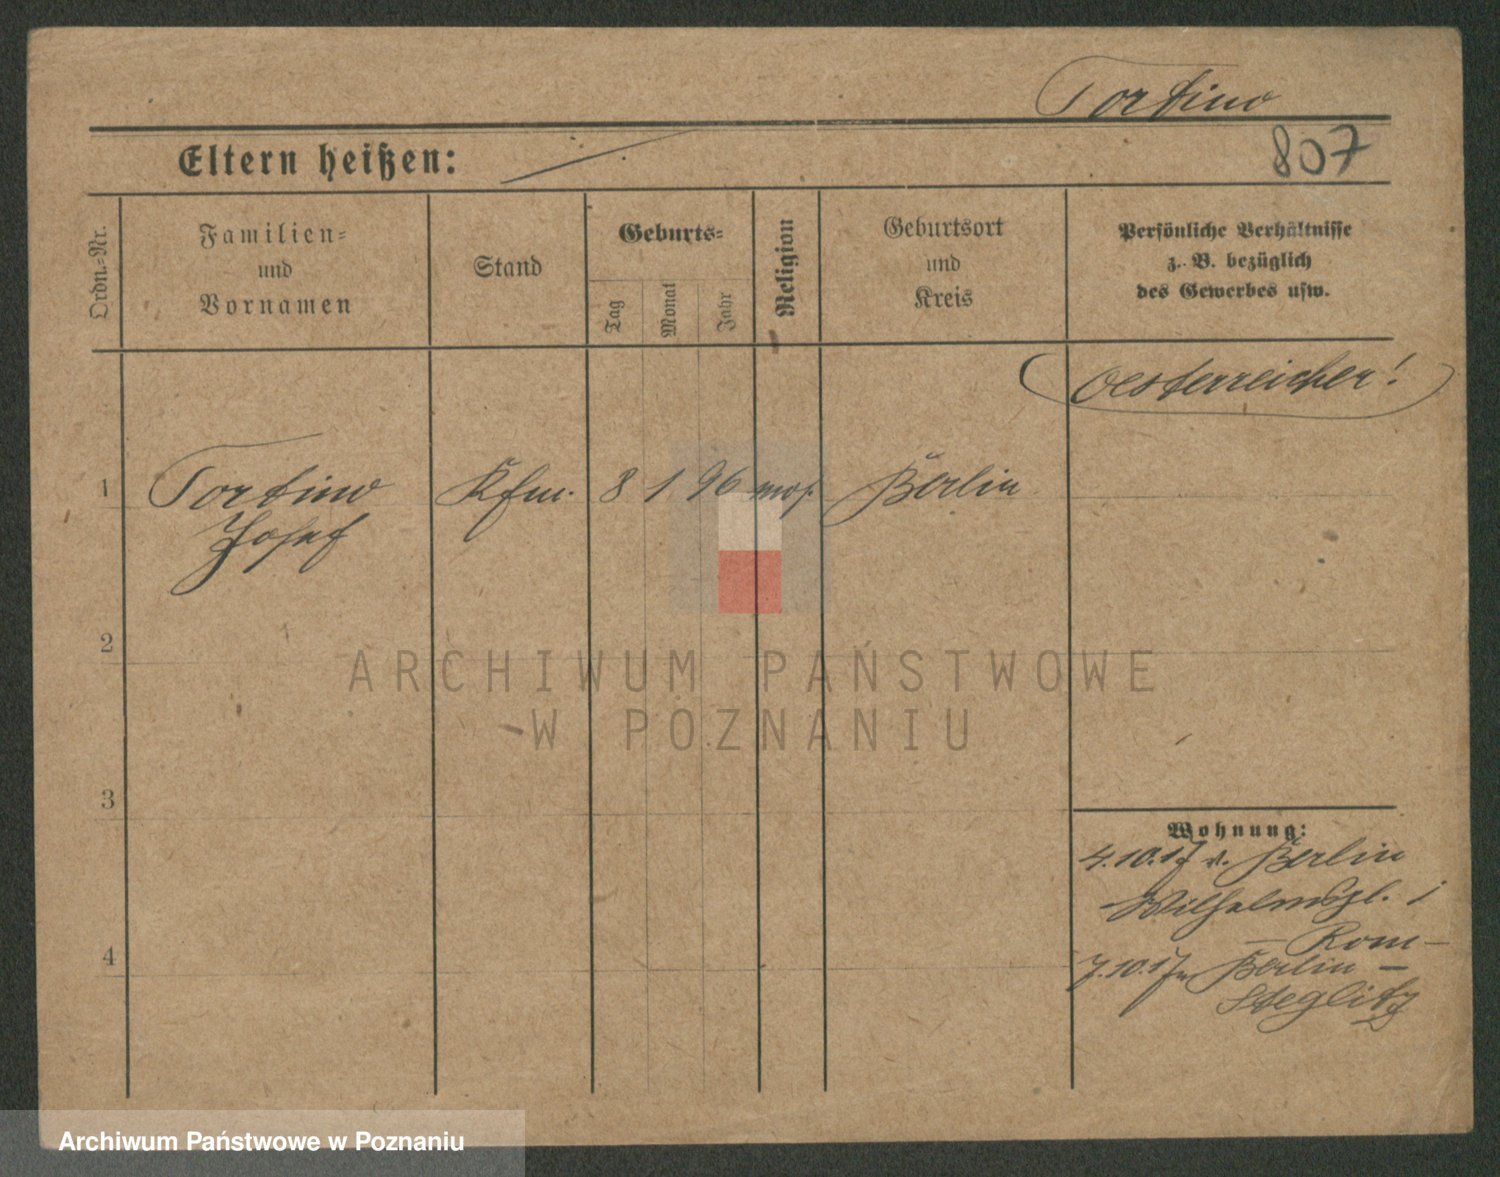 Tortino
Eltern heißen:
807
Ordn.-Nr.
Familien-
und
Vornamen
Stand
Geburts-
Tag
Monat
Jahr
Religion
Geburtsort
und
Kreis
Persönliche Verhältnisse
z. B. bezüglich
des Gewerbes usw.
Oesterreicher!
1 Tortino Kfm. 8 1 96 mos. Berlin
Josef
2
ARCHIWUM PAŃSTWOWE
W POZNANIU
3
Wohnung:
4.10.17 v. Berlin
Wilhelmspl. 1
– Rom –
4
7.10.17 n. Berlin –
Steglitz
Archiwum Państwowe w Poznaniu